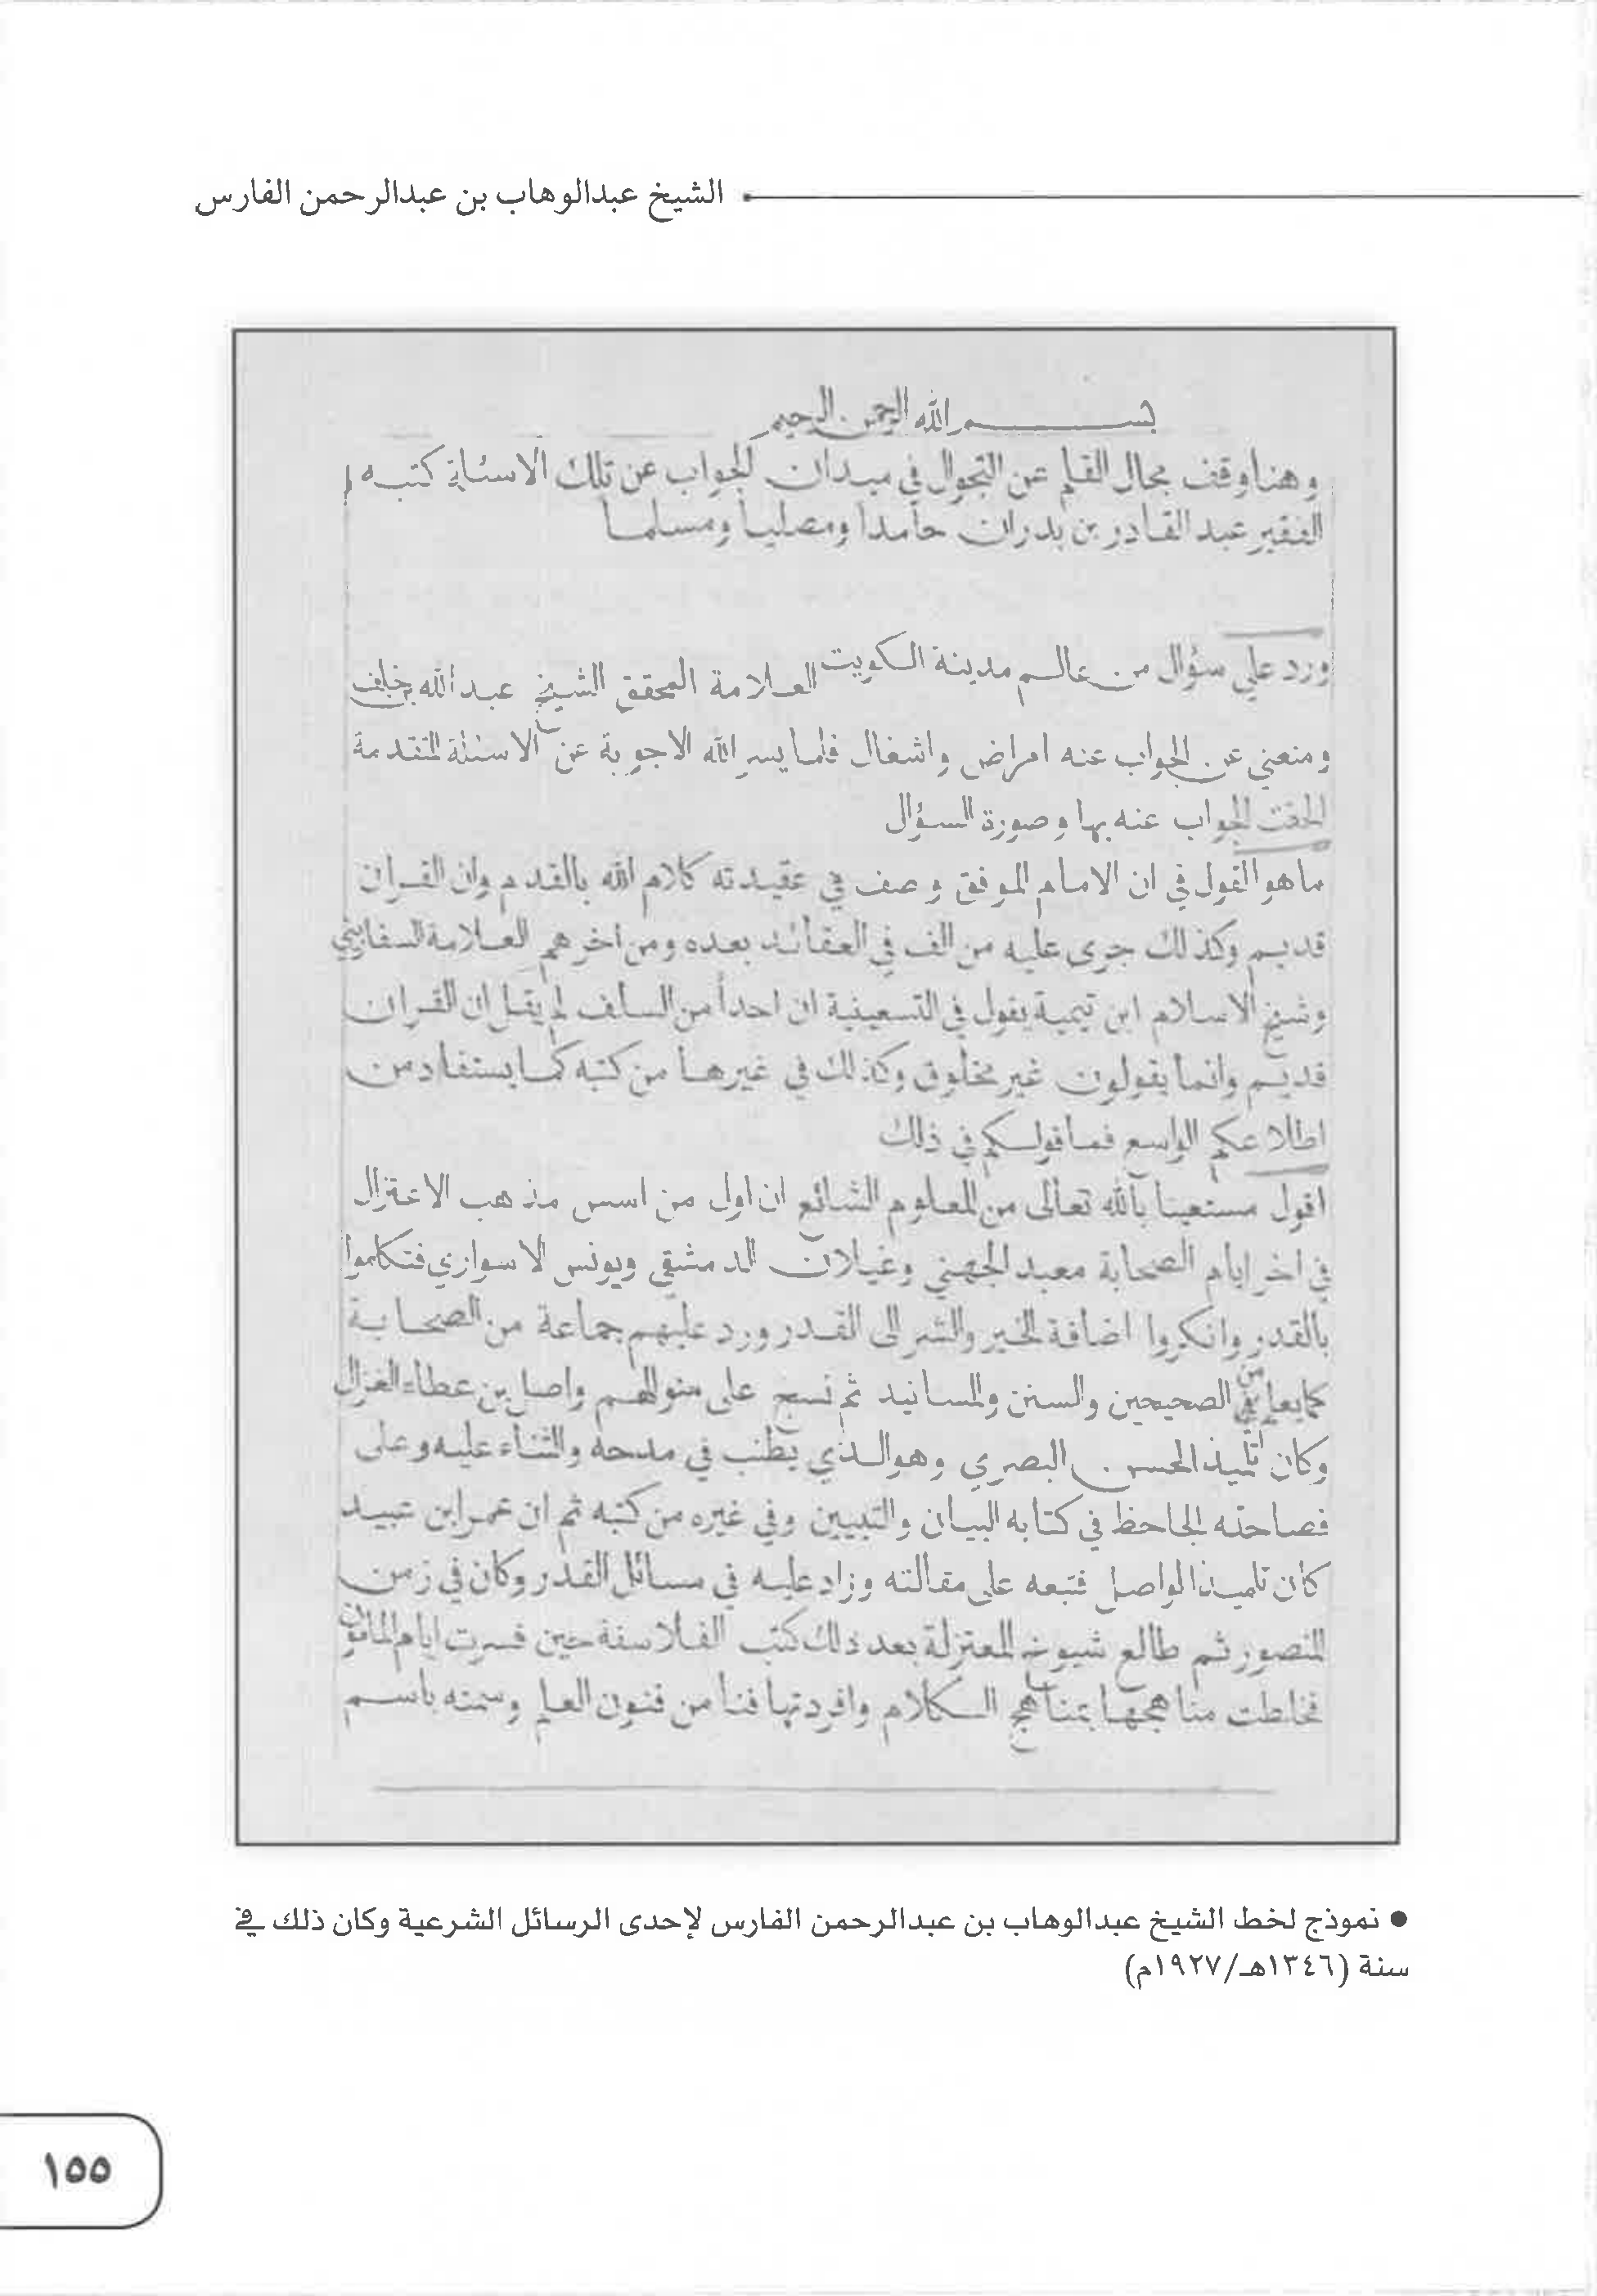 الشيخ عبدالوهاب بن عبدالرحمن الفارس
بسم الله الرحمن الرحيم
وهنا وقف مجال القلم عن التجوال في ميدان الجواب عن تلك الاسئلة كتبه
الفقير عبد القادر بن بدران حامدا ومصليا ومسلما
ورد علي سؤال من عالم مدينة الكويت العلامة المحقق الشيخ عبد الله بن خلف
ومنعني عن الجواب عنه امراض واشغال فلما يسر الله الاجوبة عن الاسئلة المتقدمة
الحقت الجواب عنه بها وصورة السؤال
ما هو القول في ان الامام الموفق وصف في عقيدته كلام الله بالقدم وان القران
قديم وكذلك جرى عليه من الف في العقائد بعده ومن اخرهم العلامة السفاريني
وشيخ الاسلام ابن تيمية يقول في التسعينية ان احدا من السلف لم يقل ان القران
قديم وانما يقولون غير مخلوق وكذلك في غيرها من كتبه كما يستفاد من
اطلاعكم الواسع فما قولكم في ذلك
اقول مستعينا بالله تعالى من المعلوم الشائع ان اول من اسس مذهب الاعتزال
في اخر ايام الصحابة معبد الجهني وغيلان الدمشقي ويونس الاسوازي فتكلموا
بالقدر وانكروا اضافة الخير والشر الى القدر ورد عليهم جماعة من الصحابة
كما يعلم من الصحيحين والسنن والمسانيد ثم نسج على منوالهم واصل بن عطاء الغزال
وكان تلميذ الحسن البصري وهو الذي يطنب في مدحه والثناء عليه وعلى
فصاحته الجاحظ في كتابه البيان والتبيين وفي غيره من كتبه ثم ان عمر ابن عبيد
كان تلميذا لواصل فتبعه على مقالته وزاد عليه في مسائل القدر وكان في زمن
المنصور ثم طالع شيوخ المعتزلة بعد ذلك كتب الفلاسفة حين فسرت ايام المامون
فخلطت مناهجها بمناهج الكلام وافردتها فنا من فنون العلم وسمته باسم
● نموذج لخط الشيخ عبدالوهاب بن عبدالرحمن الفارس لإحدى الرسائل الشرعية وكان ذلك في
سنة (١٣٤٦هـ/١٩٢٧م)
١٥٥